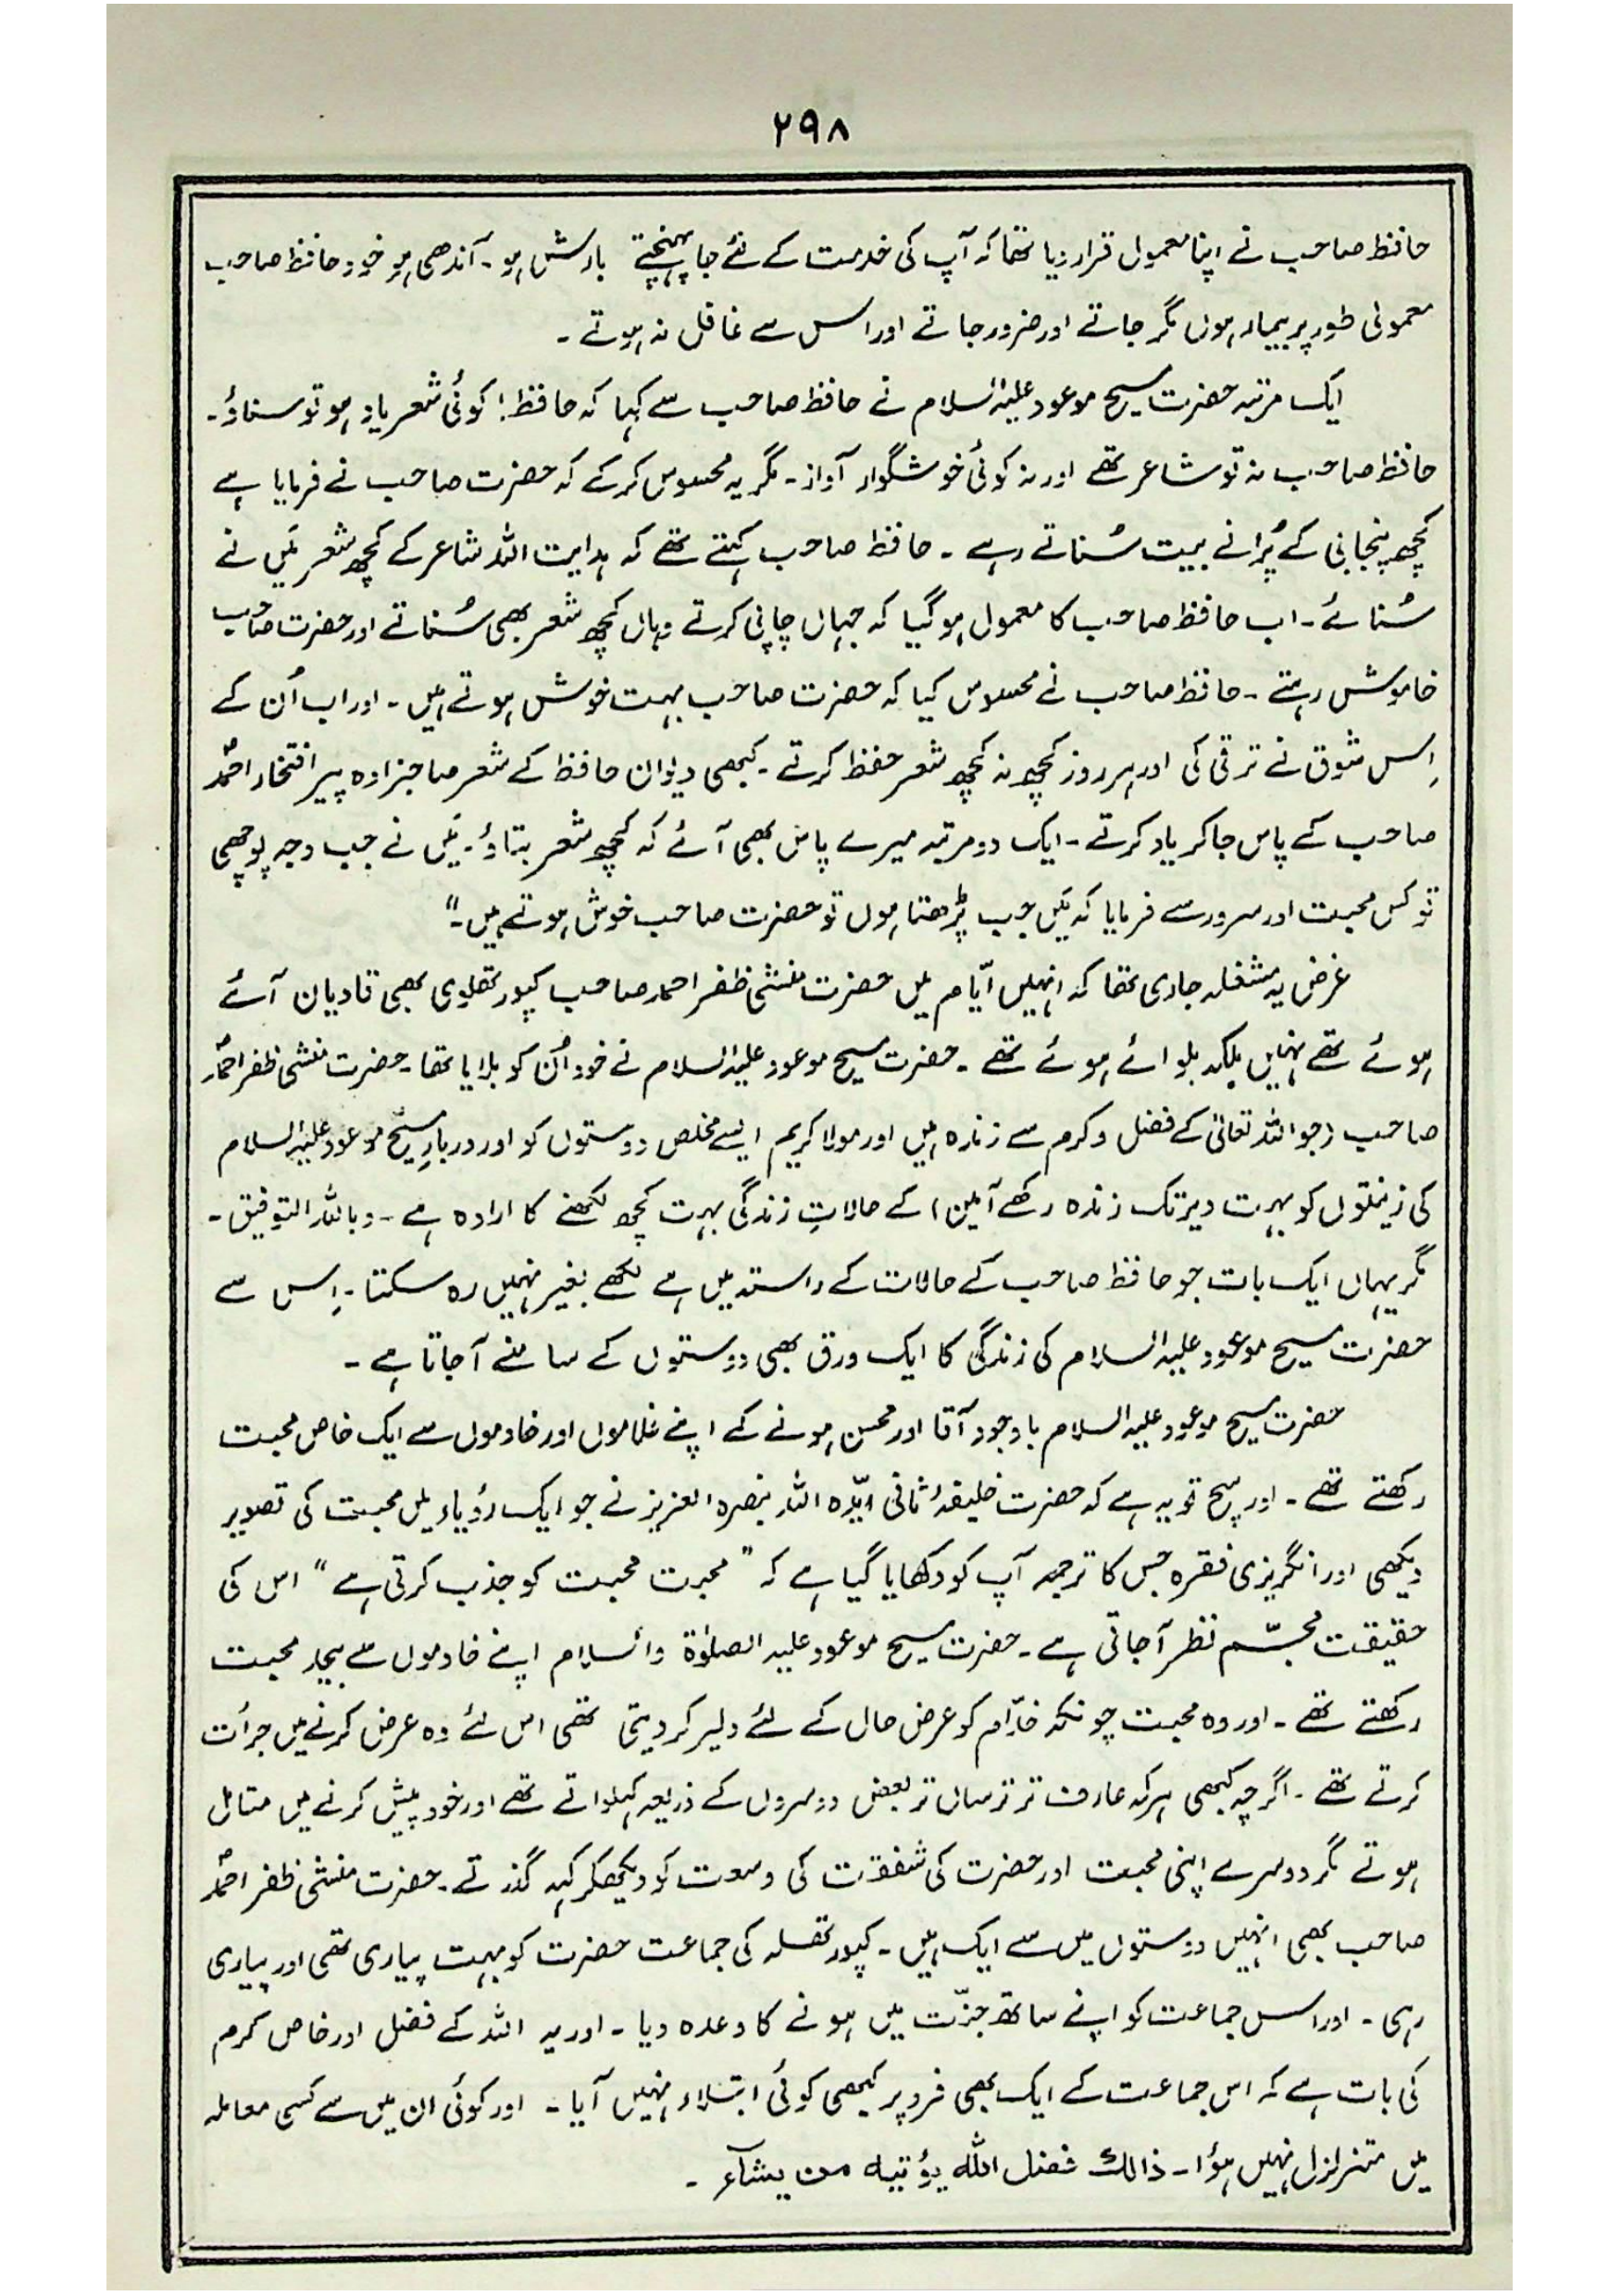 ۲۹۸
حافظ صاحب نے اپنا معمول قرار دیا تھا کہ آپ کی خدمت کے لئے جا پہنچتے بارش ہو۔ آندھی ہو خود حافظ صاحب
معمولی طور پر بیمار ہوں مگر جاتے اور ضرور جاتے اور اس سے غافل نہ ہوتے ۔
ایک مرتبہ حضرت مسیح موعود علیہ السلام نے حافظ صاحب سے کہا کہ حافظ! کوئی شعر یاد ہو تو سناؤ۔
حافظ صاحب نہ تو شاعر تھے اور نہ کوئی خوشگوار آواز۔ مگر یہ محسوس کر کے کہ حضرت صاحب نے فرمایا ہے
کچھ پنجابی کے پُرانے بیت سُناتے رہے ۔ حافظ صاحب کہتے تھے کہ ہدایت اللہ شاعر کے کچھ شعر مَیں نے
سُنائے۔ اب حافظ صاحب کا معمول ہو گیا کہ جہاں چاپی کرتے وہاں کچھ شعر بھی سُناتے اور حضرت صاحب
خاموش رہتے ۔ حافظ صاحب نے محسوس کیا کہ حضرت صاحب بہت خوش ہوتے ہیں ۔ اور اب اُن کے
اِس شوق نے ترقی کی اور ہر روز کچھ نہ کچھ شعر حفظ کرتے ۔ کبھی دیوان حافظ کے شعر صاحبزادہ پیر افتخار احمدؐ
صاحب کے پاس جا کر یاد کرتے ۔ ایک دو مرتبہ میرے پاس بھی آئے کہ کچھ شعر بتاؤ۔ مَیں نے جب وجہ پوچھی
تو کس محبت اور سرور سے فرمایا کہ مَیں جب پڑھتا ہوں تو حضرت صاحب خوش ہوتے ہیں۔"
غرض یہ مشغلہ جاری تھا کہ انہیں ایّام میں حضرت منشی ظفر احمد صاحب کپورتھلوی بھی قادیان آئے
ہوئے تھے نہیں بلکہ بلوائے ہوئے تھے ۔ حضرت مسیح موعود علیہ السلام نے خود اُن کو بلایا تھا۔ حضرت منشی ظفر احمدؐ
صاحب (جو اللہ تعالیٰ کے فضل و کرم سے زندہ ہیں اور مولا کریم ایسے مخلص دوستوں کو اور دربارِ مسیح موعود علیہ السلام
کی زینتوں کو بہت دیر تک زندہ رکھے آمین) کے حالاتِ زندگی بہت کچھ لکھنے کا ارادہ ہے ۔ وباللہ التوفیق ۔
مگر یہاں ایک بات جو حافظ صاحب کے حالات کے راستہ میں ہے لکھے بغیر نہیں رہ سکتا ۔ اِس سے
حضرت مسیح موعود علیہ السلام کی زندگی کا ایک ورق بھی دوستوں کے سامنے آ جاتا ہے ۔
حضرت مسیح موعود علیہ السلام باوجود آقا اور محسن ہونے کے اپنے غلاموں اور خادموں سے ایک خاص محبت
رکھتے تھے ۔ اور سچ تو یہ ہے کہ حضرت خلیفۂ ثانی ایّدہ اللہ بنصرہ العزیز نے جو ایک رؤیاء میں محبت کی تصویر
دیکھی اور انگریزی فقرہ جس کا ترجمہ آپ کو دکھایا گیا ہے کہ "محبت محبت کو جذب کرتی ہے" اس کی
حقیقت مجسّم نظر آجاتی ہے ۔ حضرت مسیح موعود علیہ الصلوٰۃ والسلام اپنے خادموں سے بیحد محبت
رکھتے تھے ۔ اور وہ محبت چونکہ خدّام کو عرض حال کے لئے دلیر کر دیتی تھی اس لئے وہ عرض کرنے میں جرأت
کرتے تھے ۔ اگرچہ کبھی ہر کہ عارف تر ترساں تر بعض دوسروں کے ذریعہ کہلواتے تھے اور خود پیش کرنے میں متامل
ہوتے مگر دوسرے اپنی محبت اور حضرت کی شفقت کی وسعت کو دیکھکر کہہ گذرتے ۔ حضرت منشی ظفر احمدؐ
صاحب بھی انہیں دوستوں میں سے ایک ہیں ۔ کپورتھلہ کی جماعت حضرت کو بہت پیاری تھی اور پیاری
رہی ۔ اور اس جماعت کو اپنے ساتھ جنّت میں ہونے کا وعدہ دیا ۔ اور یہ اللہ کے فضل اور خاص کرم
کی بات ہے کہ اس جماعت کے ایک بھی فرد پر کبھی کوئی ابتلاء نہیں آیا ۔ اور کوئی ان میں سے کسی معاملہ
میں متزلزل نہیں ہؤا۔ ذالک فضل اللہ یؤتیہ من یشآء ۔